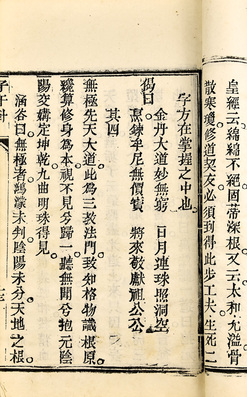 皇經云綿綿不絕固蒂深根又云太和充溢骨
散寒瓊修道契友必須到得此步工夫生死二
字方在掌握之中也
偈曰
金丹大道妙無窮 日月連珠照洞空
煑鍊牟尼無價寶 將來敬獻祖公公
其四
無極先天大道此為三教法門致知格物識根原
算修身為本視不見兮歸一聽無聞兮抱元陰
陽交媾定坤乾九曲明珠得見
涵谷曰無極者鴻濛未判陰陽未分天地之根